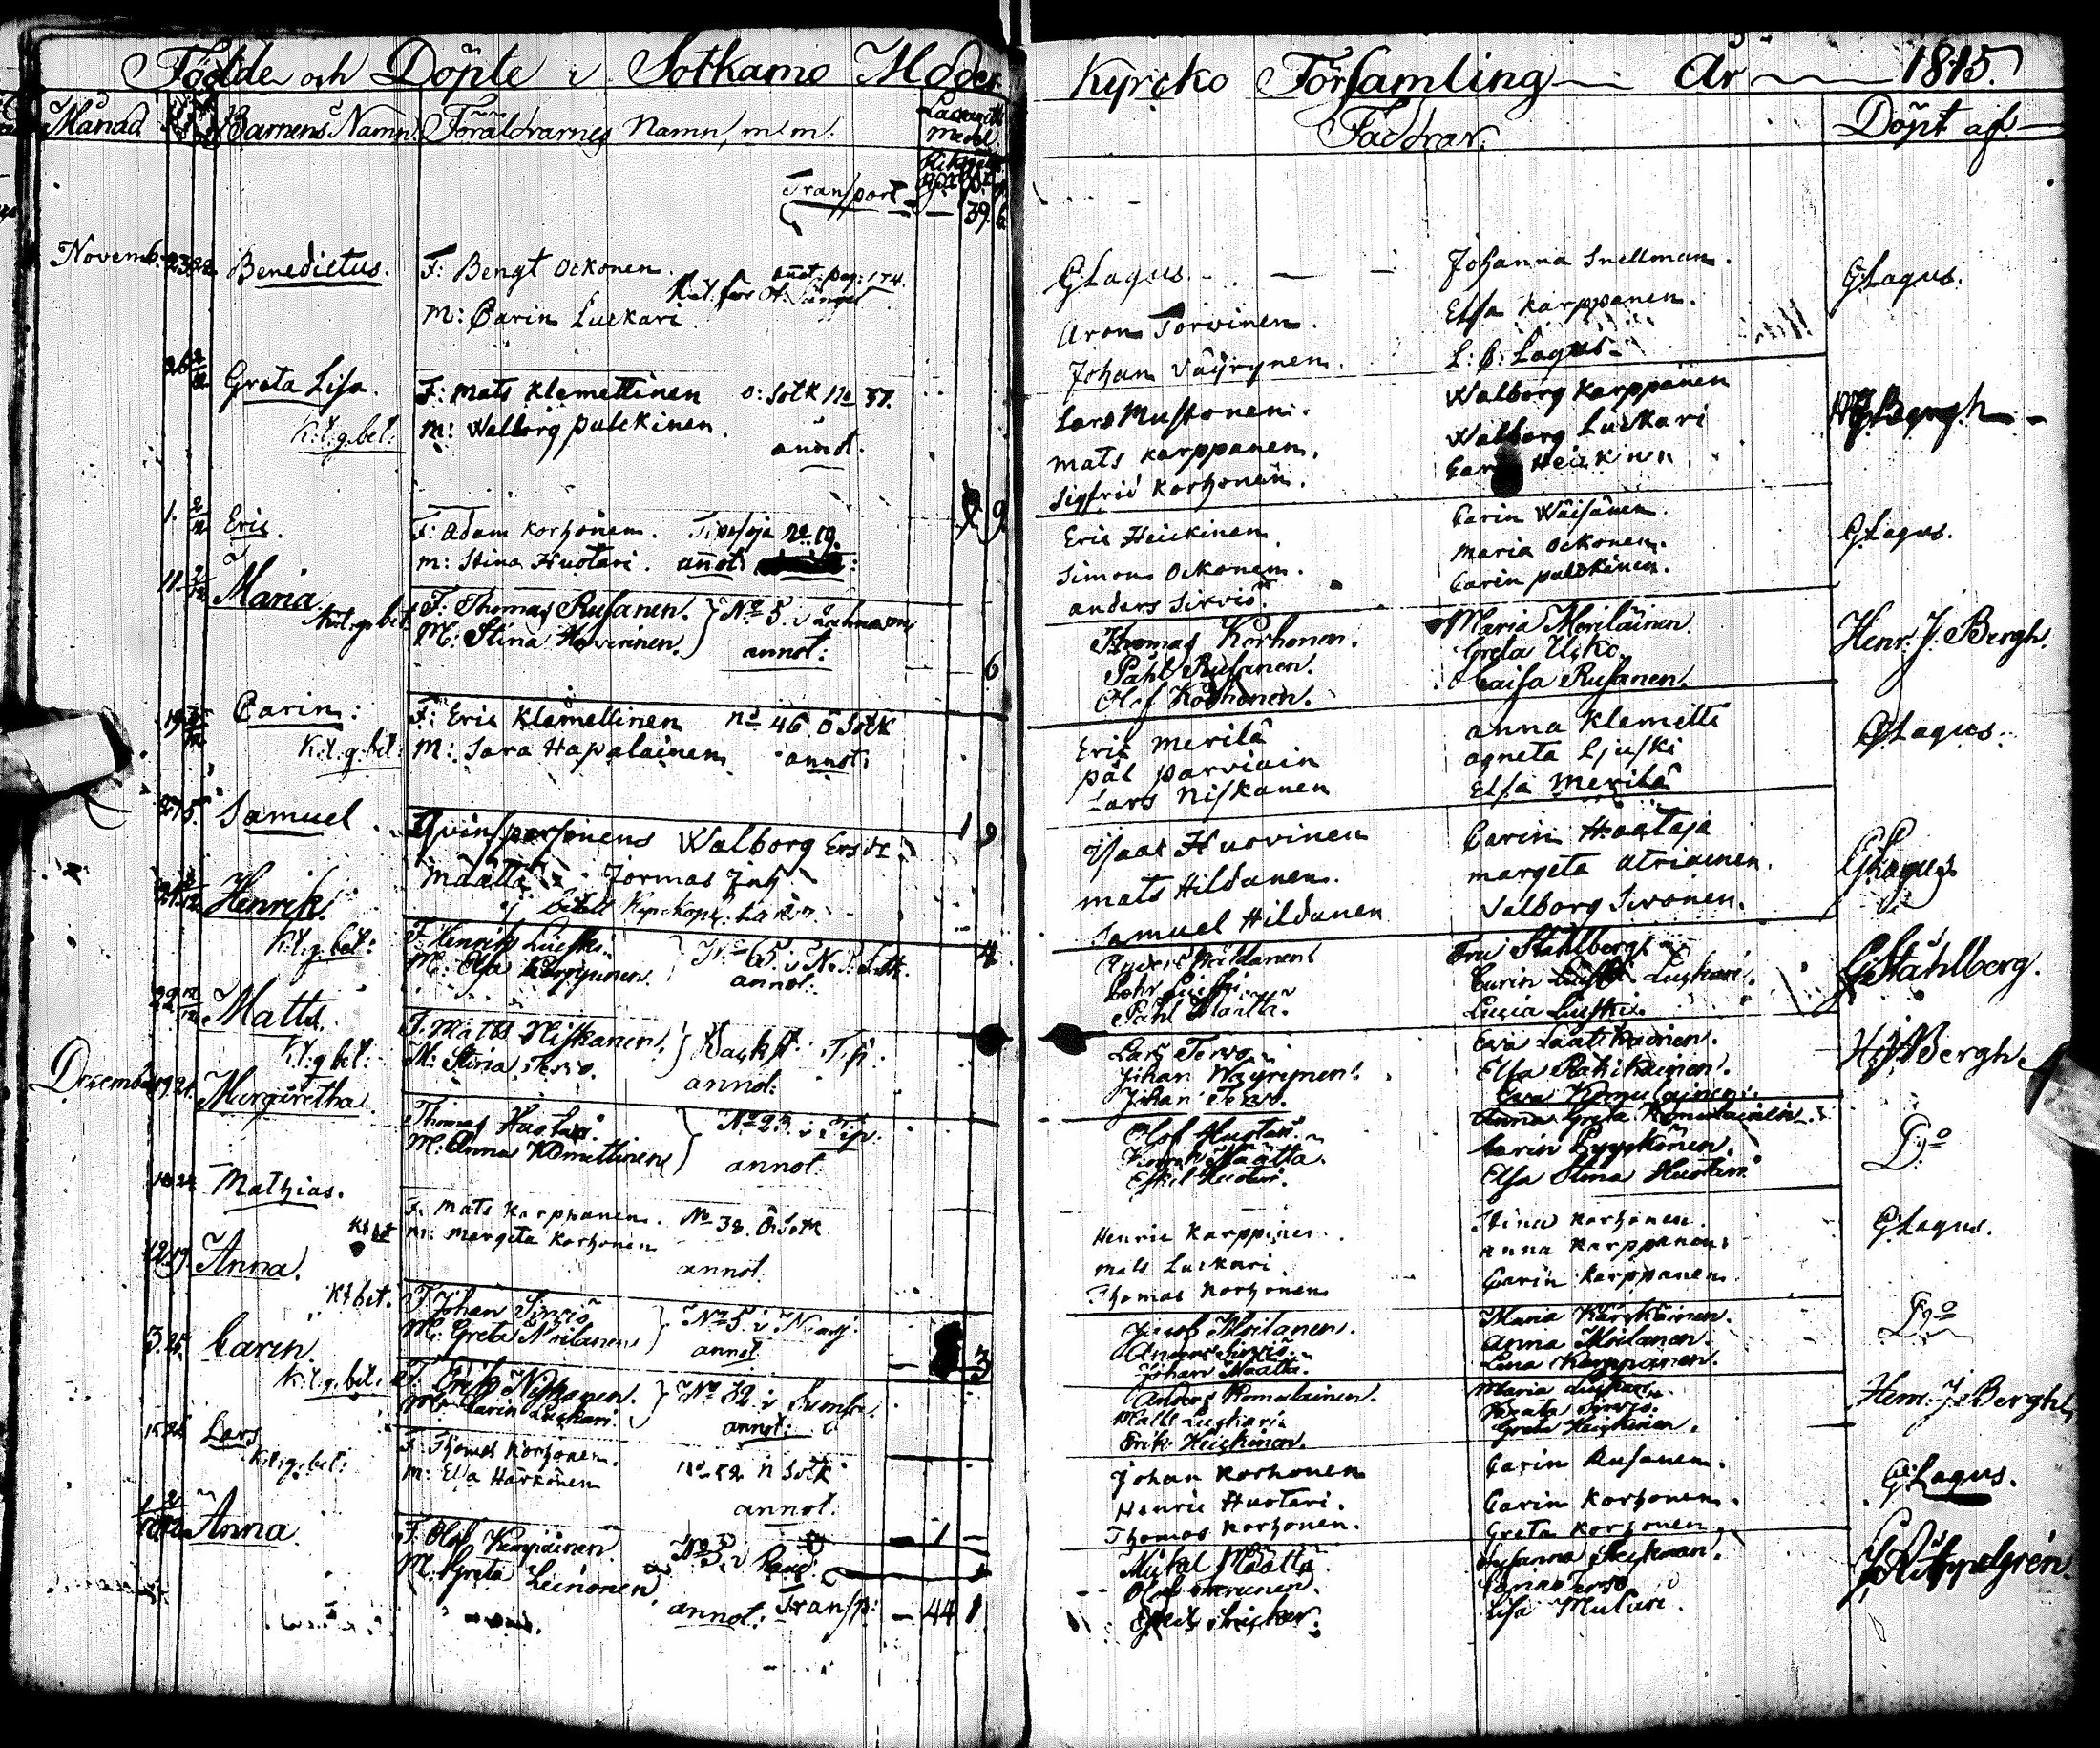 Födde och Döpte i Sotkamo Moder
Månad Barnens Namn. Föräldrarnes Namn, m. m.
Transport — 39. 6
Novemb. 23 Benedictus. F: Bengt Ockonen. annot. pag: 174.
M: Carin Luckari.
26 Greta Lisa. F: Mats Klemettinen O: Sotk No 37.
K.t.g.bet: M: Walborg Pulckinen.
annot.
1. 2/12 Eric. F: Adam Korhonen. No 19.
M: Stina Huotari. annot:
11 Maria. F: Thomas Rusanen. No 5. i
M: Stina Hoverinen. annot:
6
19 Carin: F: Eric Klemettinen No 46 Ö Sotk
K.t.g.bet: M: Sara Hapalainen annot:
27 5. Samuel. Qvinspersonens Walborg Ersdr 1 9
Määttä Jormas
Henrik. 
K.t.g.bet: F. Henrik Luckari No 65 i N. Sotk. 4
M: Elsa Karppinen. annot:
22 Matts. F. Matts Niskanen.
K.t.g.bet: M: Stina Tervo. annot:
Decemb Margaretha. Thomas Huotari. No 23. i Tip.
M: Anna Klemettinen annot.
10 24 Mathias. F. Mats Karppanen. No 38. Ö Sotk
M: Margeta Korhonen
annot.
12 19. Anna.
Kt bet. F. Johan Sirviö No 5 i
M: Greta Moilanen annot. 3
3. 25. Carin
K.t.g.bet: F. Erik Niskanen. No 32 i
M: Carin Luckari. annot:
15 Lars F: Thomas Korhonen.
K.t.g.bet: M: Elsa Harkonen No 52 N Sotk
annot.
Anna F. Olof Kempainen. — 1 —
M: Greta Leinonen
annot: Transp: — 44 1
Kyrcko Församling — År — 1815.
Faddrar. Döpt af —
G Lagus. — — Johanna Snellman. G Lagus.
Aron Torvinen. Elsa Karppanen.
Johan Väyrynen. L: C: Lagus.
Lars Mustonen. Walborg Karppanen Bergh
Mats Karppanen. Walborg Luckari
Sigfrid Korhonen. Heickinen
Eric Heickinen. Carin Wäisänen. G Lagus.
Simon Ockonen. Maria Ockonen.
Anders Sirviö. Carin Pulckinen.
Thomas Korhonen. Maria Meriläinen. Henr. J. Bergh.
Påhl Rusanen. Greta Ucko.
Olof Korhonen. Caisa Rusanen.
Eric Merilä Anna Klemetti G Lagus.
Pål Parviain Agneta Ljuski
Lars Niskanen Elsa Merilä
Isaac Huovinen Carin Haataja G Lagus
Mats Hildanen. Margeta Atriainen.
Samuel Hildanen Valborg Sivonen.
Anders Hildanen Fru Ståhlberg. G Ståhlberg.
Carin Luckari.
Påhl Määttä. Lucia
Lars Tervo. Eva Laatikainen. H J Bergh.
Johan Wäyrynen. Elsa
Johan Tervo. Eva Komulainen.
Olof Huotari. Anna Greta Komulainen. Do
Henrik Määttä. Carin Pyykkönen.
Eskil Huotari. Elsa Stina Huotari
Henric Karppinen. Stina Korhonen. G Lagus.
Mats Luckari. Anna Karppanen.
Thomas Korhonen Carin Karppanen
Jacob Moilanen. Maria Kärckäinen. Do
Anders Sirviö. Anna Moilanen.
Johan Määttä. Lena Karppanen.
Anders Komulainen. Maria Henr. J. Bergh
Matts Luckari. Beata Sirviö.
Erik Heickinen. Greta Heickinen.
Johan Korhonen Carin Rusanen. G Lagus.
Henric Huotari. Carin Korhonen.
Thomas Korhonen. Greta Korhonen
Michel Määttä Susanna
Carin Tervo
Lisa